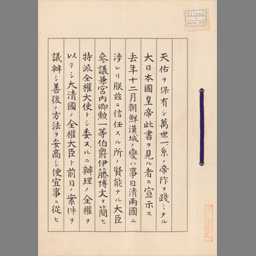 天佑ヲ保有シ萬世一系ノ帝祚ヲ踐ミタル
大日本國皇帝此書ヲ見ル者ニ宣示ス
去年十二月朝鮮漢城ノ變ハ事日清兩國ニ
渉レリ朕茲ニ信任スル所ノ賢能ナル大臣
參議兼宮内卿勲一等伯爵伊藤博文ヲ簡ヒ
特派全權大使トシ委スルニ辦理ノ全權ヲ
以テシ大清國ノ全權大臣ト前日ノ案件ヲ
議辦シ善後ノ方法ヲ妥商シ便宜事ニ從ヒ